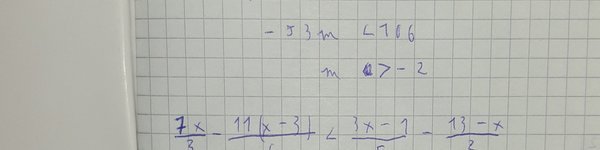 - 53m < 106
m > - 2
7x/3 - 11(x-3)/ < 3x-1/5 - 13-x/2